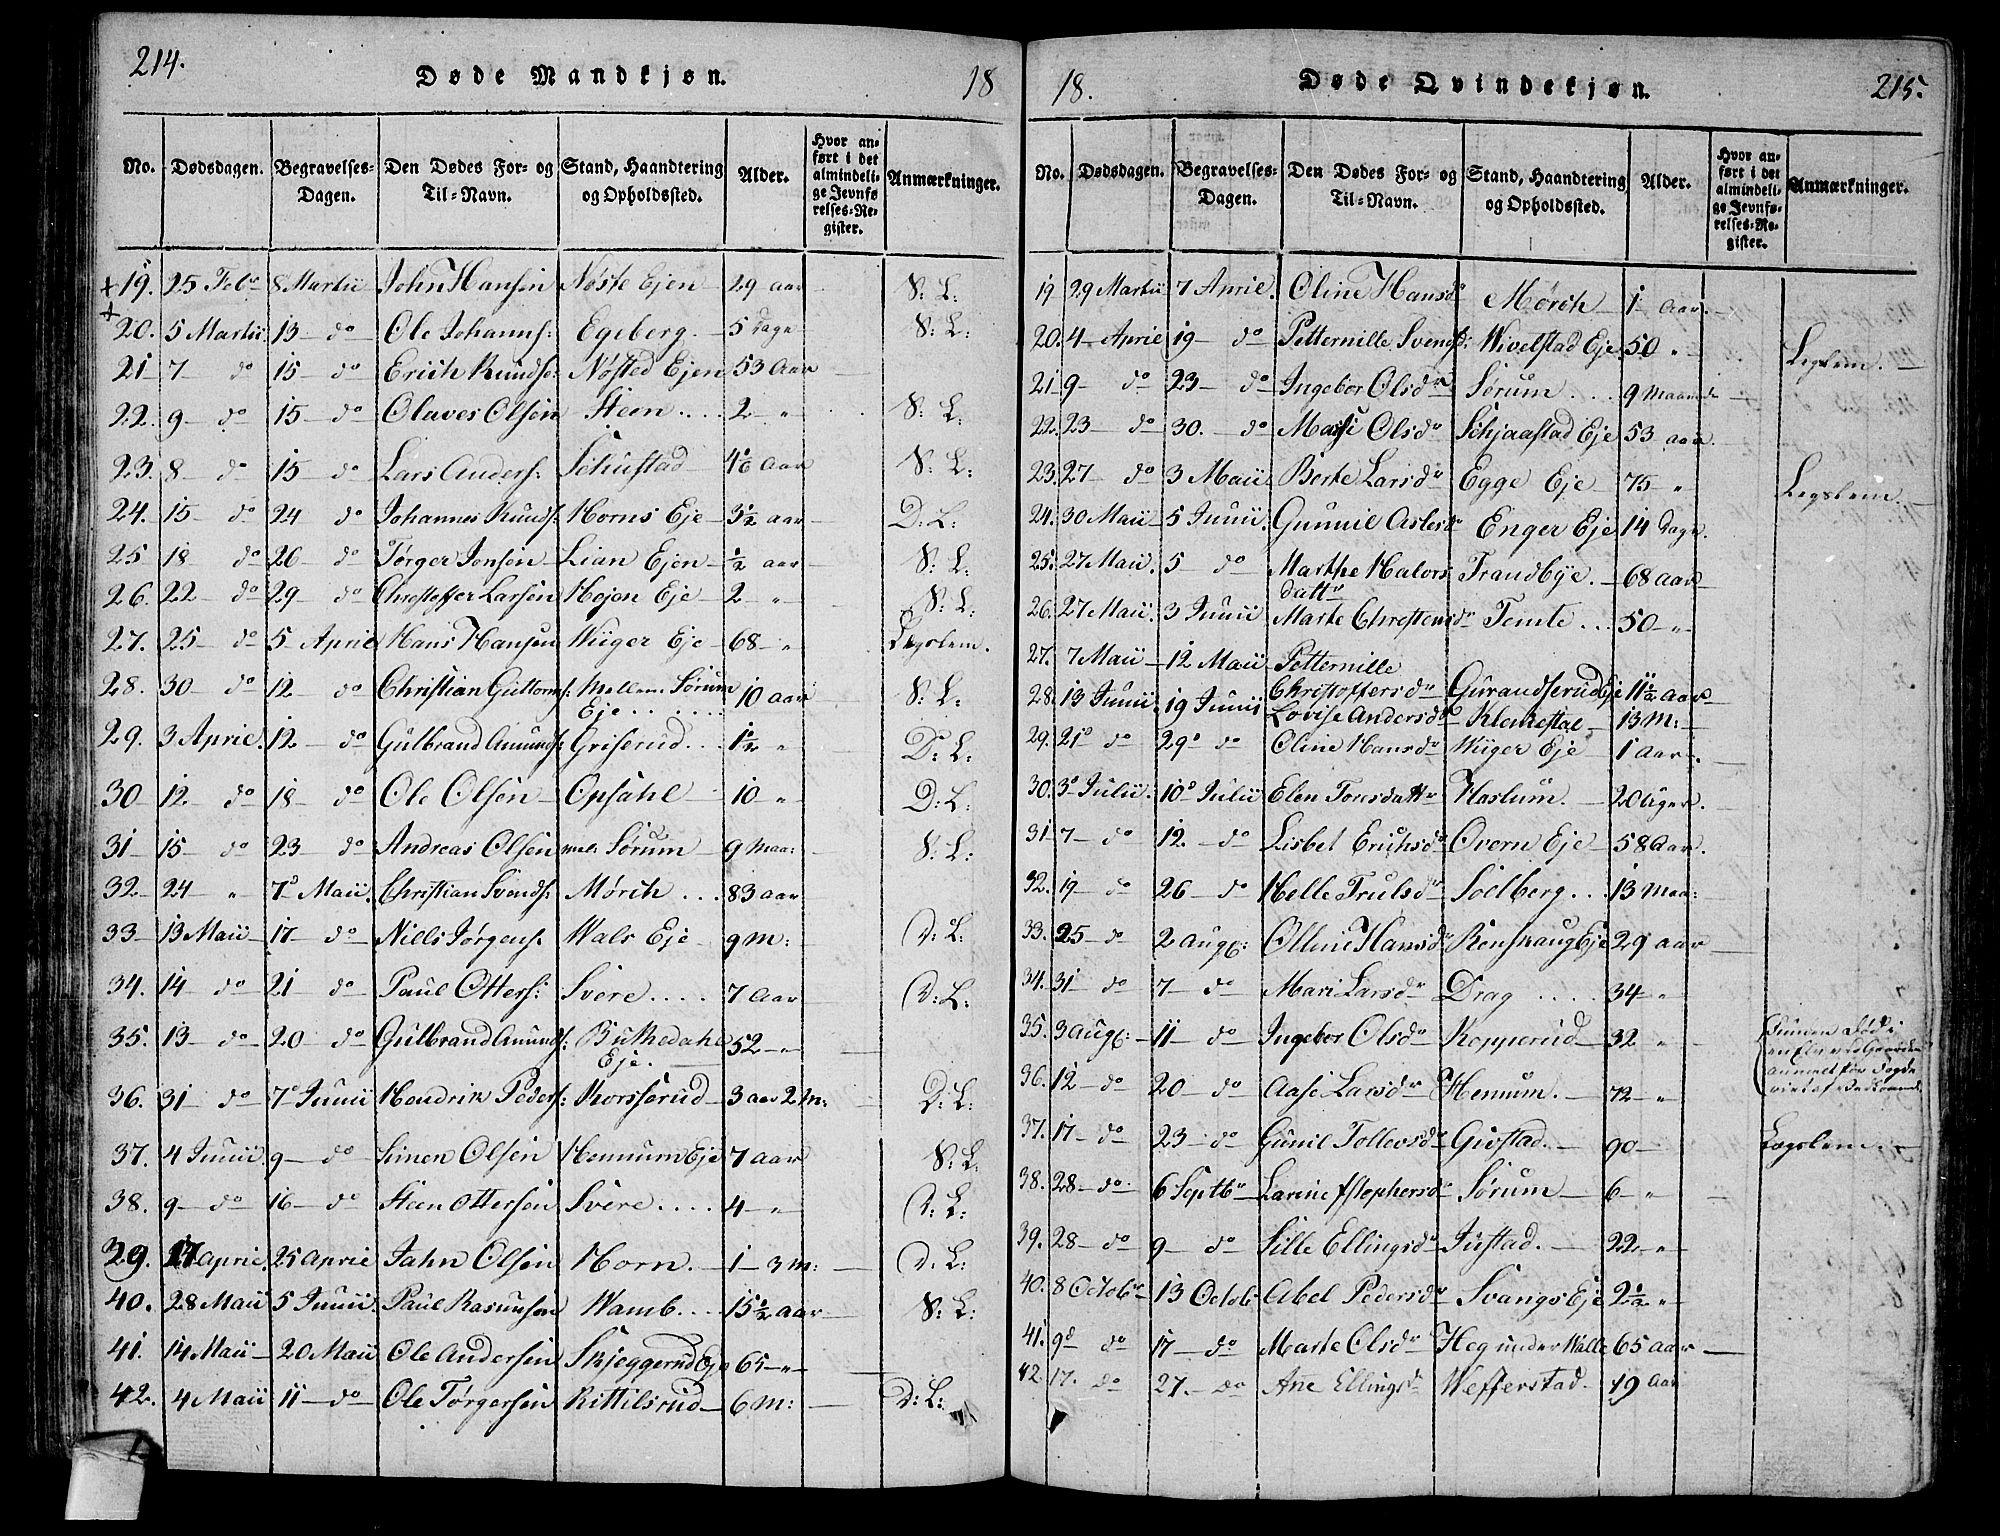 214.
Døde Mandkjøn.
18
No. Dødsdagen. Begravelses-Dagen. Den Dødes For- og Til-Navn. Stand, Haandtering og Opholdssted. Alder. Hvor anført i det almindelige Jevnførelses-Register. Anmærkninger.
19. 25 Feb. 8 Martii John Hansen Nøste Ejen 29 aar S: L:
20. 5 Martii 13 do Ole Johanns: Egeberg 5 dage S: L:
21 7 do 15 do Erich Knuds: Nøsted Ejen 53 Aar
22. 9 do 15 do Olaves Olsen Steen 2 " S: L:
23. 8 do 15 do Lars Anders: 4 Aar S: L:
24. 15 do 24 do Johannes Knuds: Horns Eje 3½ aar D: L:
25 18 do 26 do Tørger Jonsen Lian Ejen ½ aar S: L:
26. 22 do 29 do Christoffer Larsen Hojen Eje 2 " S: L:
27. 25 do 5 April Hans Hansen Wiiger Eje 68 " Lægslem.
28. 30 do 12 do Christian Guttorms: Mellem Sørum Eje 10 aar S: L:
29. 3 April. 12 do Gulbrand Amunds: Griserud 1½ " D: L:
30 12 do 18 do Ole Olsen Opsahl 10 " D: L:
31 15 do 23 do Andreas Olsen mel: Sørum 9 Maa: S: L:
32 24 " 7d Maii. Christian Svends: Mørch 83 aar
33 13 Maii 17 do Niells Jørgens. Wals Eje 9 M: D: L:
34. 14 do 21 do Paul Otters: Svere 7 Aar D: L:
35. 13 do 20 do Gulbrand Amunds: Butkedahl Eje. 52 "
36. 31 do 7d Junii Hendrik Peders: Korsserud 3 aar 2 m: D: L:
37. 4 Junii 9 do Simen Olsen Hennum Eje 7 aar S: L:
38. 9 do 16 do Steen Ottersen Svere 4 " D: L:
39. 17 April. 25 April Jahn Olsen Horn. 1 3 m: D: L:
40. 28 Maii 5 Junii Paul Rasmusen Wamb. 15½ aar S: L:
41. 14 Maii 20 Maii Ole Andersen Skjeggerud Eje 65 "
42. 4 Maii 11 do Ole Tørgersen Kittilsrud 6 M: D: L:
18.
Døde Qvindekjøn.
215.
No. Dødsdagen. Begravelses-Dagen. Den Dødes For- og Til-Navn. Stand, Haandtering og Opholdssted. Alder. Hvor anført i det almindelige Jevnførelses-Register. Anmærkninger.
19 29 Martii 7 April. Oline Hansdr Mørch 1 aar.
20. 4 April 19 do Petternille Svendsd: Wivelstad Eje 50 " Legslem.
21 9 do 23 do Ingebor Olsdr Sørum 9 Maaneder
22. 23 do 30. do Olsdr Schjaastad Eje 53 aar.
23. 27 do 3 Maii Berte Larsdr Egge Eje 75 " Legslem.
24. 30 Maii 5 Junii. Gunnil Aslesdr Enger Eje 14 dage.
25. 27 Maii. 5 do Marthe Halvorsdattr Trandbye. 68 aar
26. 27 Maii. 3 Junii Marte Christensdr Temte 50 "
27. 7 Maii 12 Maii Petternille Christoffersdr Gurandserud Eje 11½ aar
28. 13 Junii. 19 Junii Lovise Andersdr Klemestal 13 M:
29. 21d do 29d do Oline Hansdr Wiiger Eje 1 Aar.
30. 3d Julii. 10d Julii Elen Tonsdattr Haslum. 20 Uger.
31 7 do 12 do Lisbet Erichsdr Overn Eje 58 Aar.
32. 19 do 26 do Helle Trulsdr Solberg 13 Maa:
33. 25 do 2 Aug: Olline Hansdr Renskaug Eje 29 aar
34. 31 do 7 do Mari Larsdr Drag 34 "
35. 3 Aug: 11 do Ingebor Olsdr Kopperud 32 "
36. 12 do 20 do Aase Larsdr Hennum. 72 "
37. 17 do 23 do Gunil Tollevsdr Givstad. 90 Lægslem
38. 28 do. 6 Septbr Larine Sørum 6 "
39. 28 do 9 do Sille Ellingsdr Justad. 22 "
40. 8 Octobr 13 Octob: Abel Pedersdr Svangs Eje 2½ "
41. 9d do 17 do Marte Olsdr Heg under Walle 65 aar
42 17. do 27. do Ane Ellingsdr Wefferstad. 19 Aar